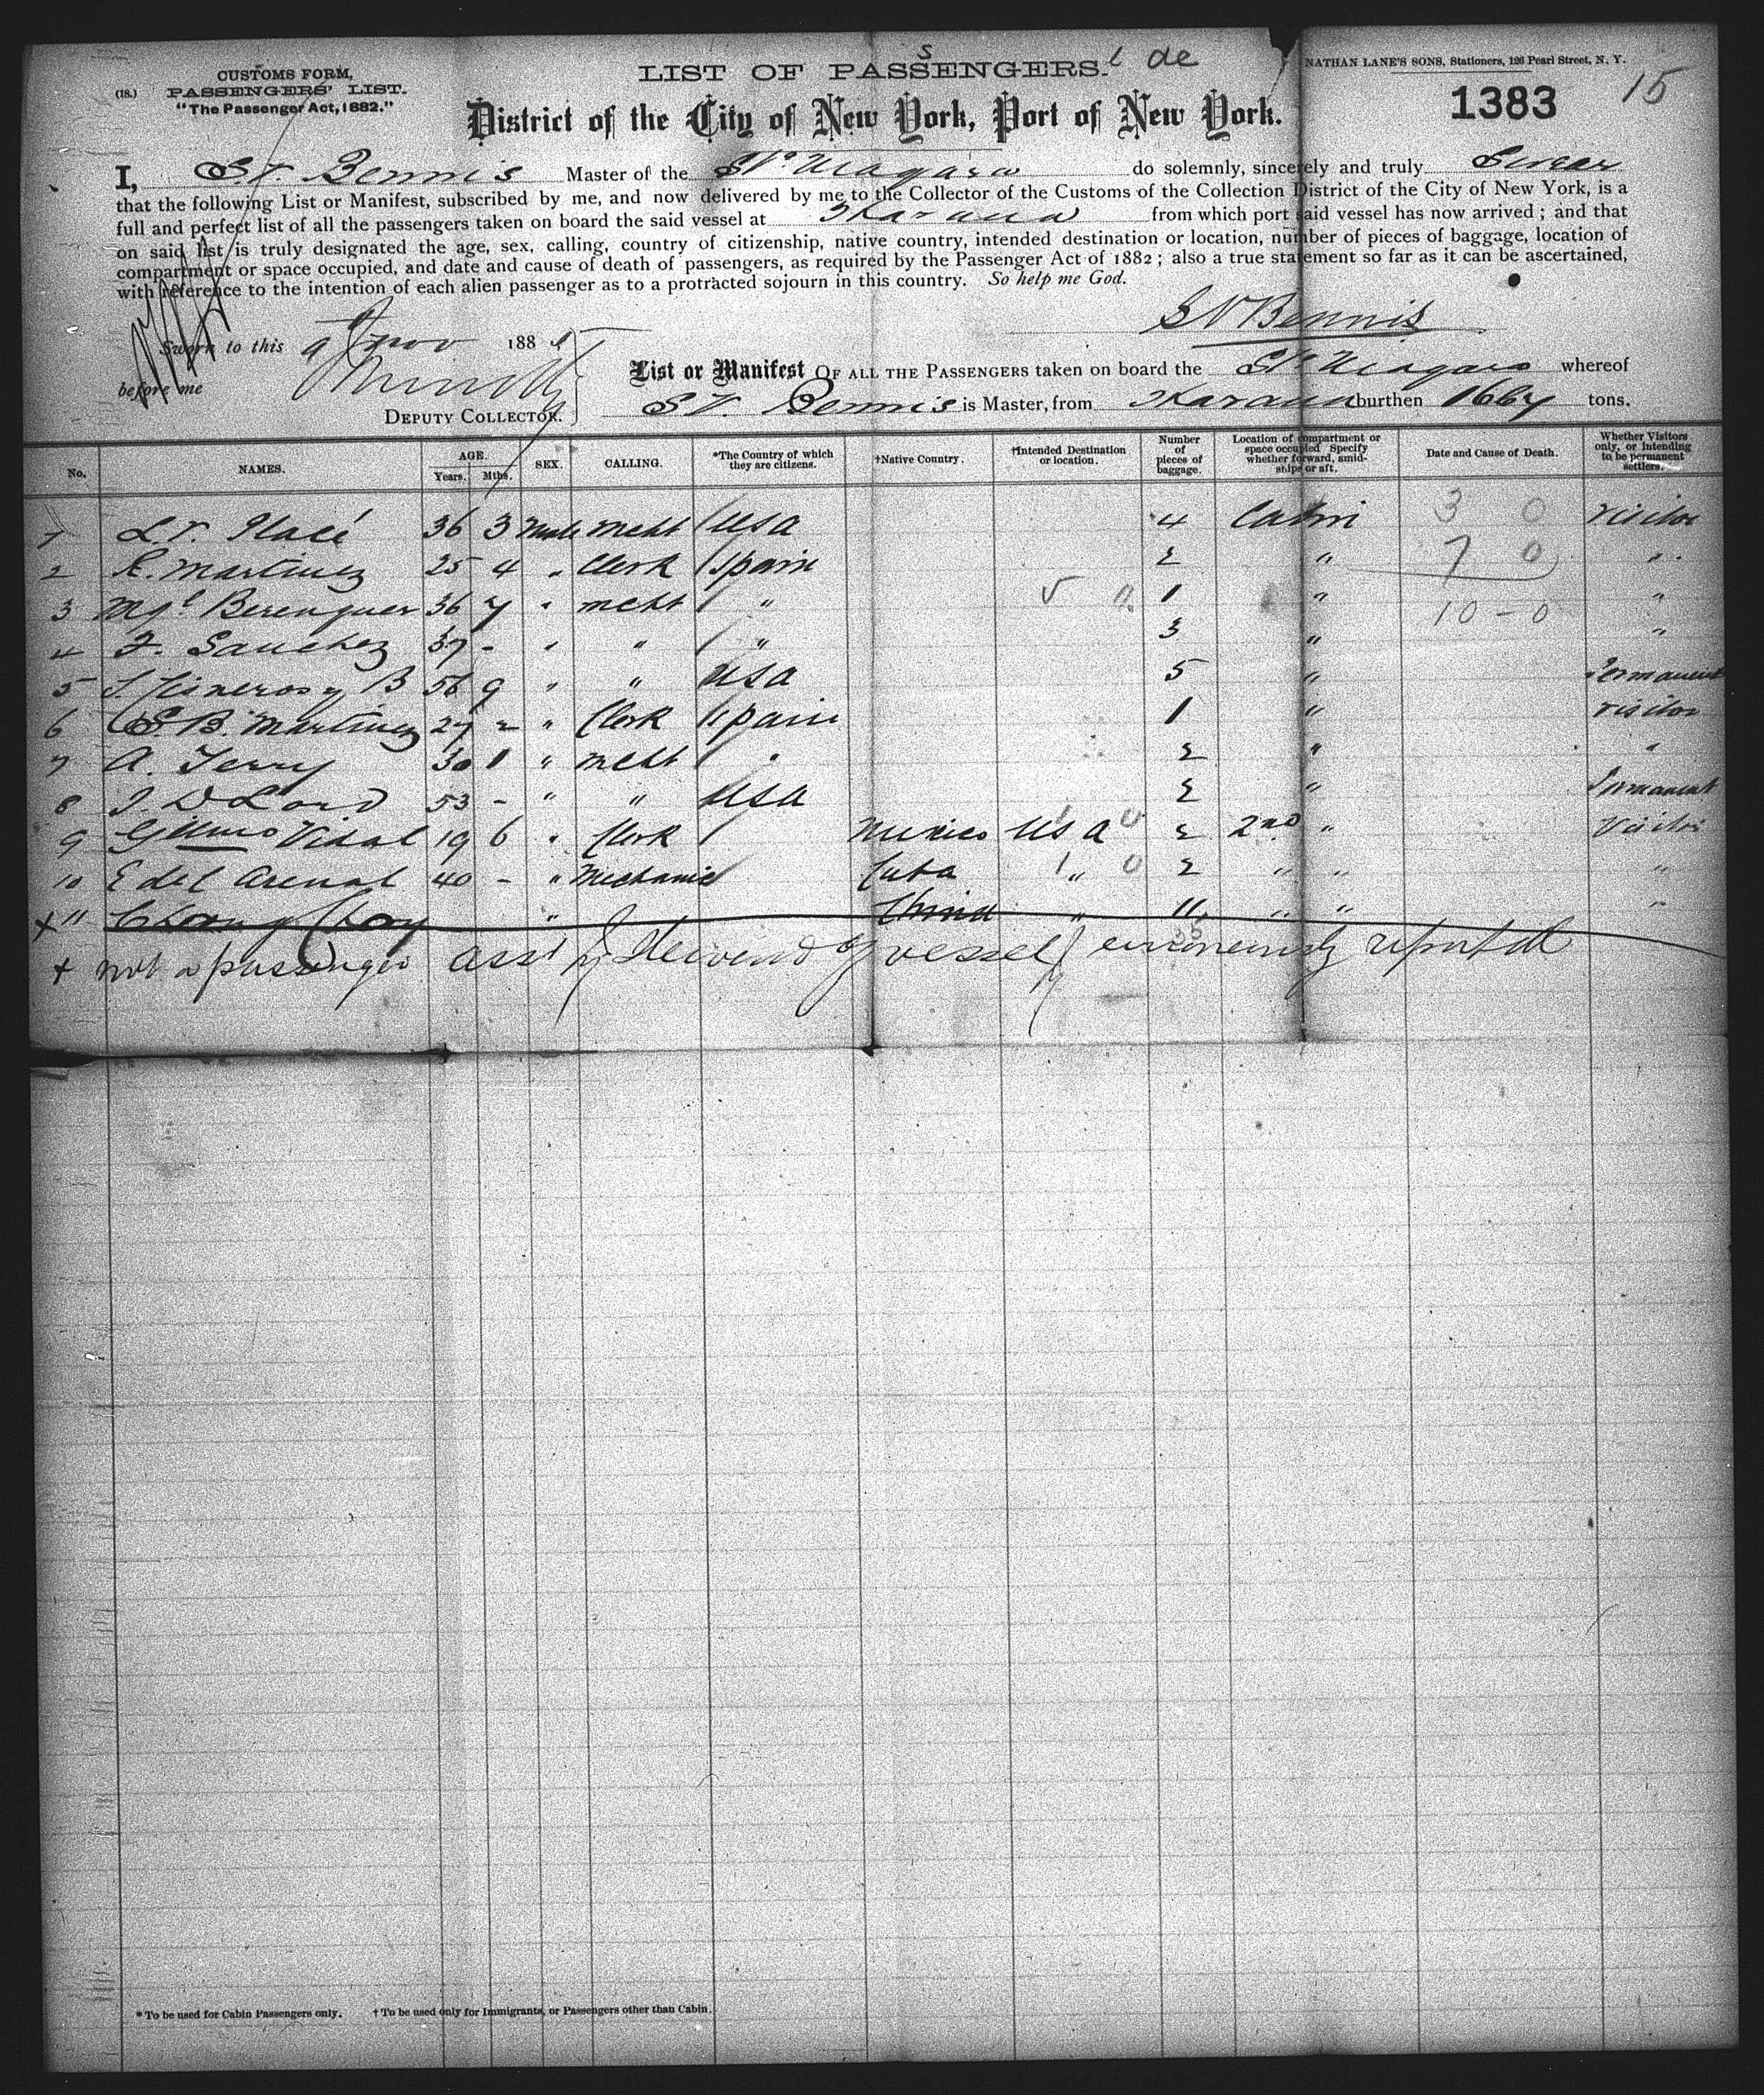 (18.)
CUSTOMS FORM,
PASSENGERS' LIST.
"The Passenger Act, 1882."
LIST OF PASSENGERS.
NATHAN LANE'S SONS, Stationers, 126 Pearl Street, N. Y.
District of the City of New York, Port of New York.
1383 15
I, S. V. Bennis Master of the Str Niagara do solemnly, sincerely and truly Swear
that the following List or Manifest, subscribed by me, and now delivered by me to the Collector of the Customs of the Collection District of the City of New York, is a
full and perfect list of all the passengers taken on board the said vessel at Havana from which port said vessel has now arrived; and that
on said list is truly designated the age, sex, calling, country of citizenship, native country, intended destination or location, number of pieces of baggage, location of
compartment or space occupied, and date and cause of death of passengers, as required by the Passenger Act of 1882; also a true statement so far as it can be ascertained,
with reference to the intention of each alien passenger as to a protracted sojourn in this country. So help me God.
S V Bennis
Sworn to this 9 Nov 188
before me
DEPUTY COLLECTOR.
List or Manifest OF ALL THE PASSENGERS taken on board the Str Niagara whereof
S V. Bennis is Master, from Havana burthen 1667 tons.
No. NAMES. AGE. Years. Mths. SEX. CALLING. *The Country of which they are citizens. †Native Country. †Intended Destination or location. Number of pieces of baggage. Location of compartment or space occupied Specify whether forward, amidships or aft. Date and Cause of Death. Whether Visitors only, or Intending to be permanent settlers.
1 L. V. Placé 36 3 Male Mcht USA 4 Cabin 3 0 Visitor
2 R. Martinez 25 4 " Clerk Spain 2 " 7 0 "
3 Mgl Berenguer 36 7 " Mcht " 1 " 10 - 0 "
4 F. Sanchez 37 - " " " 3 " "
5 Cisneros y B 56 9 " " USA 5 " Permanent
6 S. B. Martinez 27 2 " Clerk Spain 1 " Visitor
7 A. Terry 30 1 " Mcht " 2 " "
8 J. D Lord 53 - " " USA 2 " Permanent
9 Gillmo Vidal 19 6 " Clerk Mexico USA 2 2nd " Visitor
10 E del Arenal 40 - " Mechanic Cuba " 2 " " "
x 11 Choy " China " " " "
x not a passenger asst of vessel erroneously reported
* To be used for Cabin Passengers only. † To be used only for Immigrants, or Passengers other than Cabin.